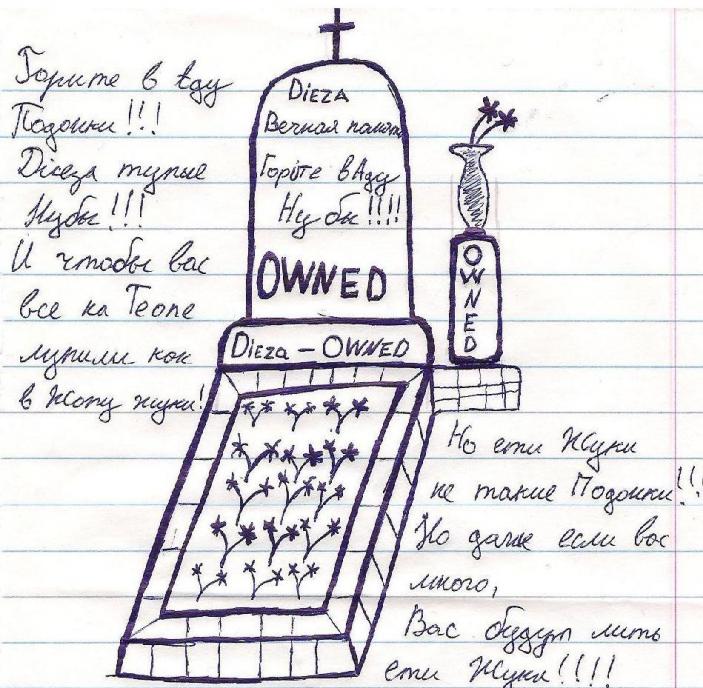 Горите в Аду
Подонки!!!
Dieza тупые
Нубы!!!
И чтобы вас
все на Теопе
лупили как
в Жопу жуки!
DIEZA
Вечная
Горіте в Аду
Нубы!!!!
OWNED
Dieza – OWNED
OWNED
Но ети Жуки
не такие Подонки!!!
Но даже если вас
много,
Вас будут лить
ети Жуки!!!!